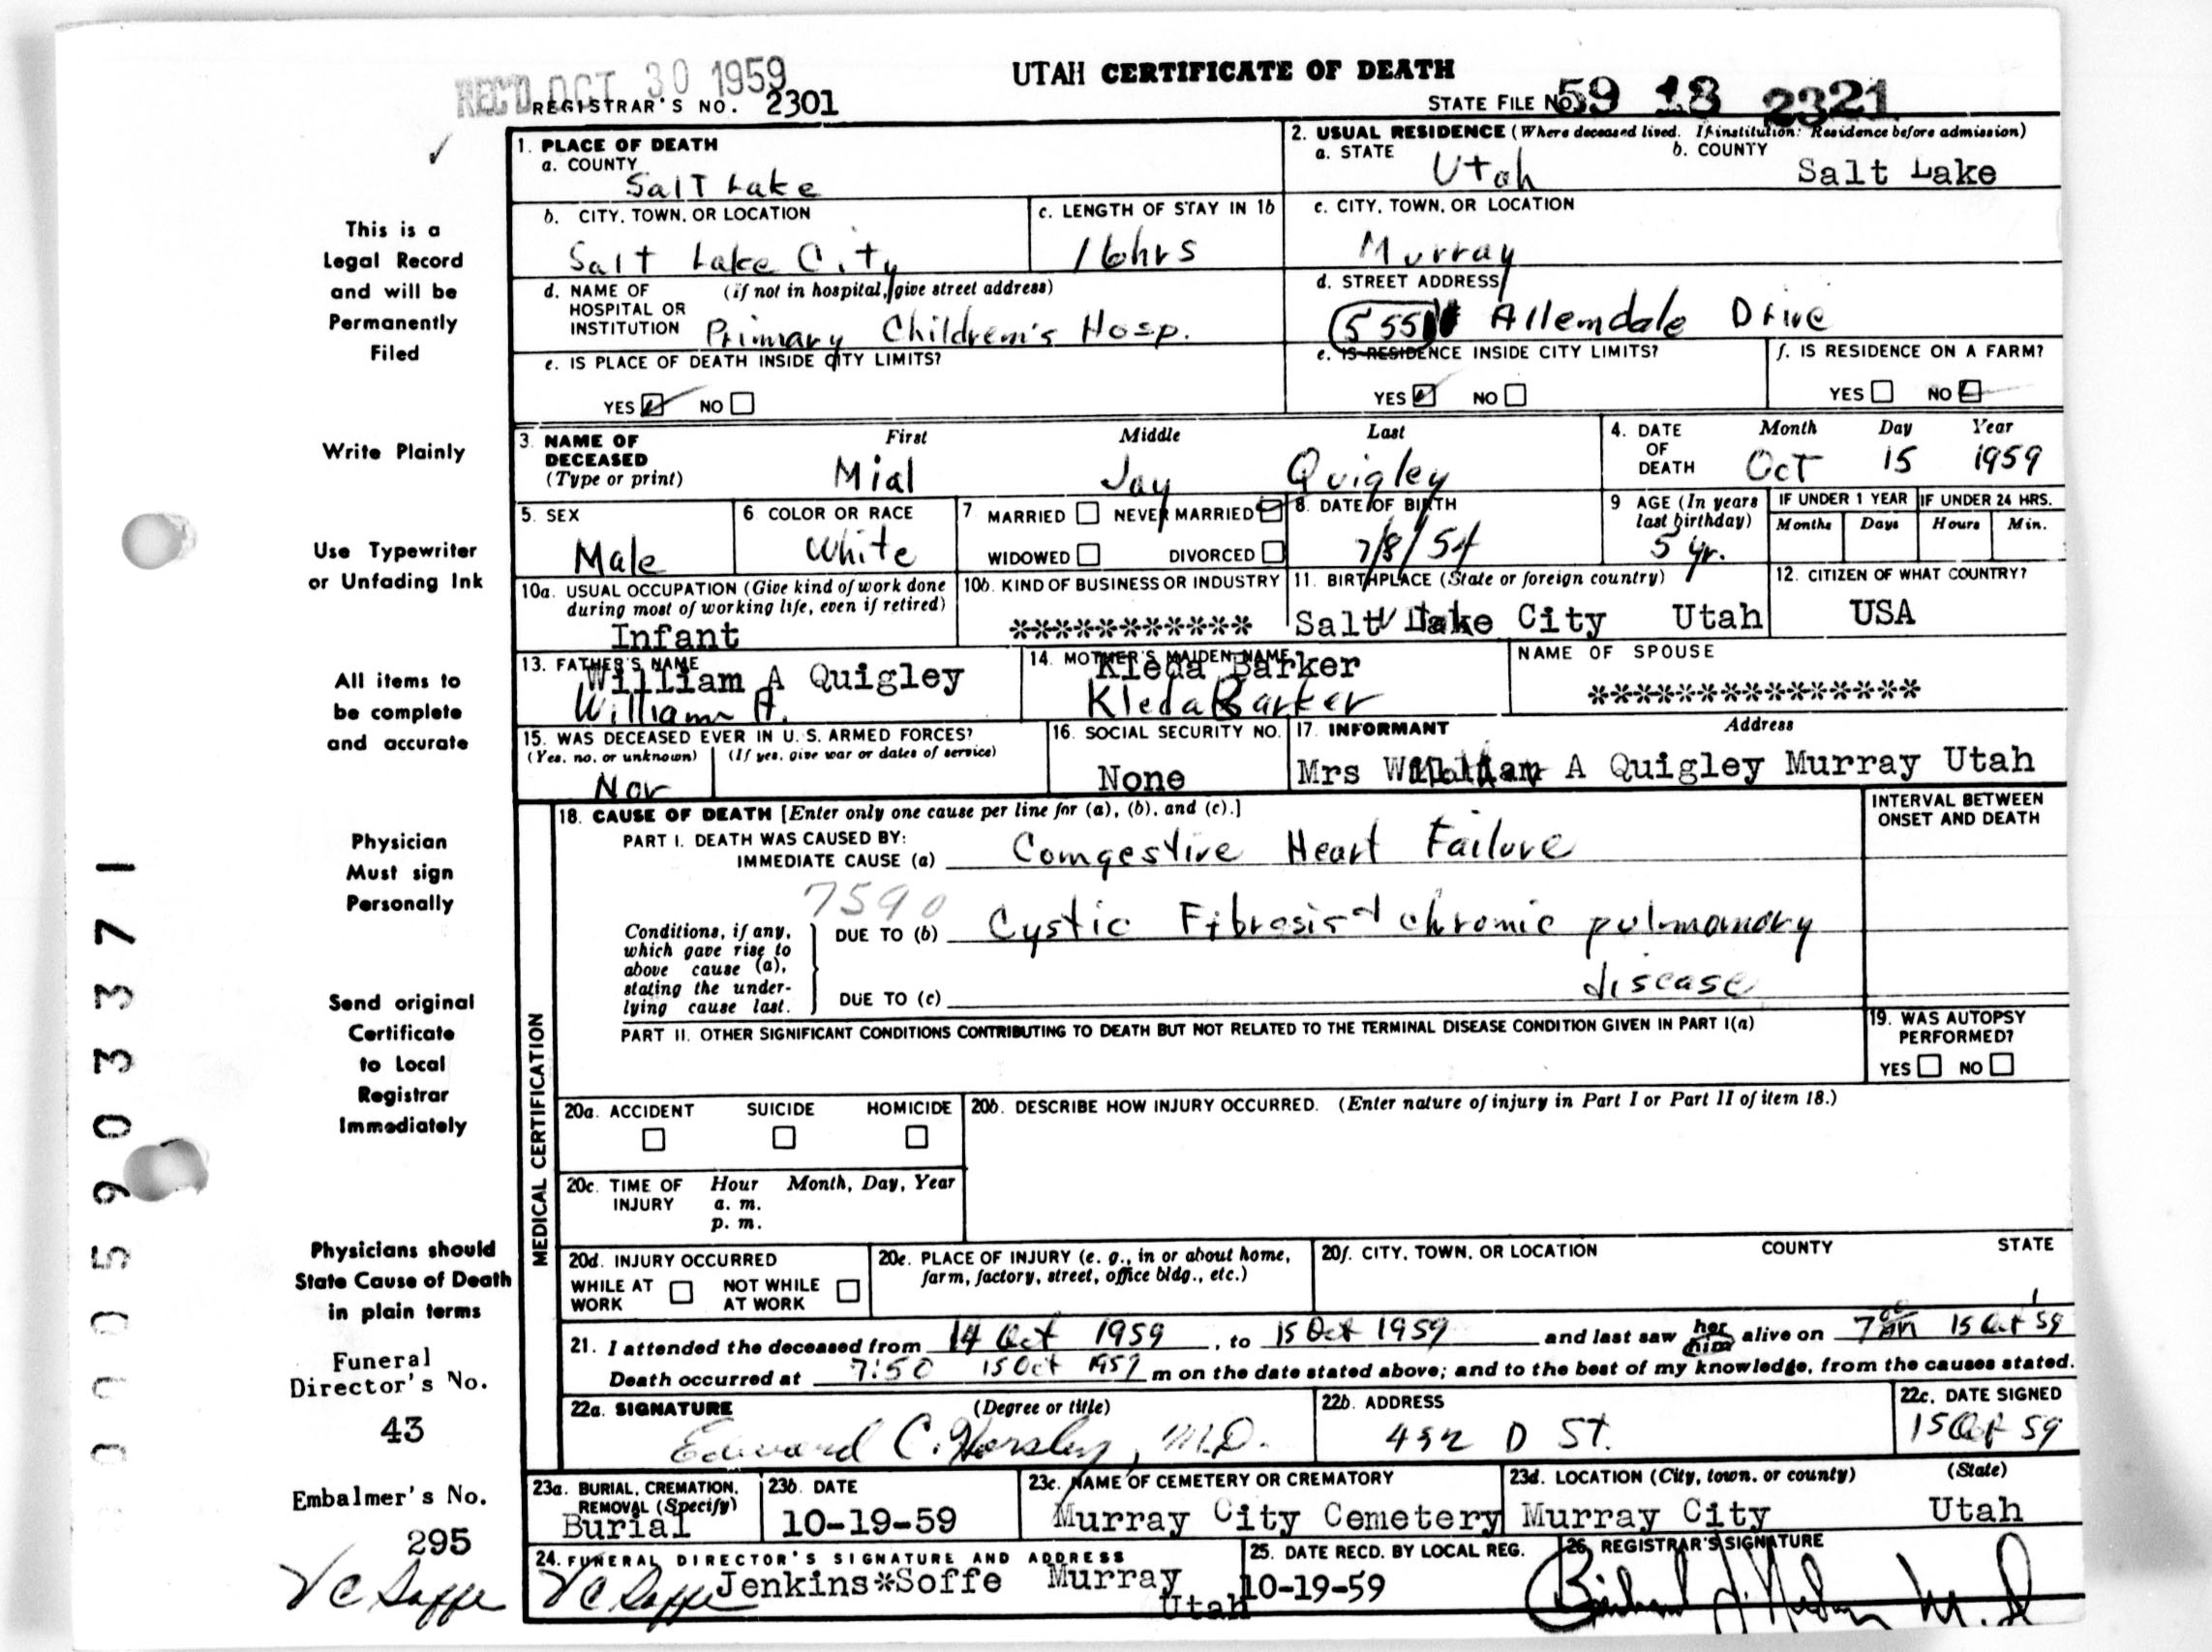 REC'D OCT 30 1959
UTAH CERTIFICATE OF DEATH
REGISTRAR'S NO. 2301
STATE FILE NO. 59 18 2321
1. PLACE OF DEATH
a. COUNTY
Salt Lake
2. USUAL RESIDENCE (Where deceased lived. If institution: Residence before admission)
a. STATE Utah b. COUNTY Salt Lake
b. CITY, TOWN, OR LOCATION
Salt Lake City
c. LENGTH OF STAY IN 1b
16hrs
c. CITY, TOWN, OR LOCATION
Murray
d. NAME OF HOSPITAL OR INSTITUTION (if not in hospital, give street address)
Primary Children's Hosp.
d. STREET ADDRESS
555 Allendale Drive
e. IS PLACE OF DEATH INSIDE CITY LIMITS?
YES NO
e. IS RESIDENCE INSIDE CITY LIMITS?
YES NO
f. IS RESIDENCE ON A FARM?
YES NO
3. NAME OF DECEASED (Type or print)
First Middle Last
Mial Jay Quigley
4. DATE OF DEATH
Month Day Year
Oct 15 1959
5. SEX
Male
6. COLOR OR RACE
White
7. MARRIED NEVER MARRIED
WIDOWED DIVORCED
8. DATE OF BIRTH
7/8/54
9 AGE (In years last birthday)
5 yr.
IF UNDER 1 YEAR
Months Days
IF UNDER 24 HRS.
Hours Min.
10a. USUAL OCCUPATION (Give kind of work done during most of working life, even if retired)
Infant
10b. KIND OF BUSINESS OR INDUSTRY
***********
11. BIRTHPLACE (State or foreign country)
Salt Lake City Utah
12. CITIZEN OF WHAT COUNTRY?
USA
13. FATHER'S NAME
William A Quigley
William A.
14. MOTHER'S MAIDEN NAME
Kleda Barker
Kleda Barker
NAME OF SPOUSE
***************
15. WAS DECEASED EVER IN U. S. ARMED FORCES?
(Yes, no, or unknown) (If yes, give war or dates of service)
16. SOCIAL SECURITY NO.
None
17. INFORMANT Address
Mrs William A Quigley Murray Utah
MEDICAL CERTIFICATION
18. CAUSE OF DEATH [Enter only one cause per line for (a), (b), and (c).]
INTERVAL BETWEEN ONSET AND DEATH
PART I. DEATH WAS CAUSED BY:
IMMEDIATE CAUSE (a) Congestive Heart Failure
7590
Conditions, if any, which gave rise to above cause (a), stating the underlying cause last.
DUE TO (b) Cystic Fibrosis & chronic pulmonary
disease
DUE TO (c)
PART II. OTHER SIGNIFICANT CONDITIONS CONTRIBUTING TO DEATH BUT NOT RELATED TO THE TERMINAL DISEASE CONDITION GIVEN IN PART I(a)
19. WAS AUTOPSY PERFORMED?
YES NO
20a. ACCIDENT SUICIDE HOMICIDE
20b. DESCRIBE HOW INJURY OCCURRED. (Enter nature of injury in Part I or Part II of item 18.)
20c. TIME OF INJURY Hour Month, Day, Year
a. m.
p. m.
20d. INJURY OCCURRED
WHILE AT WORK NOT WHILE AT WORK
20e. PLACE OF INJURY (e. g., in or about home, farm, factory, street, office bldg., etc.)
20f. CITY, TOWN, OR LOCATION COUNTY STATE
21. I attended the deceased from 14 Oct 1959, to 15 Oct 1959 and last saw her him alive on 7 00 am 15 Oct 59
Death occurred at 7:50 15 Oct 1959 m on the date stated above; and to the best of my knowledge, from the causes stated.
22a. SIGNATURE (Degree or title)
Edward C. Horsley, M.D.
22b. ADDRESS
492 D St.
22c. DATE SIGNED
15 Oct 59
23a. BURIAL, CREMATION, REMOVAL (Specify)
Burial
23b. DATE
10-19-59
23c. NAME OF CEMETERY OR CREMATORY
Murray City Cemetery
23d. LOCATION (City, town, or county) (State)
Murray City Utah
24. FUNERAL DIRECTOR'S SIGNATURE AND ADDRESS
V C Soffe Jenkins*Soffe Murray
Utah
25. DATE RECD. BY LOCAL REG.
10-19-59
26. REGISTRAR'S SIGNATURE
This is a
Legal Record
and will be
Permanently
Filed
Write Plainly
Use Typewriter
or Unfading Ink
All items to
be complete
and accurate
Physician
Must sign
Personally
Send original
Certificate
to Local
Registrar
Immediately
Physicians should
State Cause of Death
in plain terms
Funeral
Director's No.
43
Embalmer's No.
295
V C Soffe
0005903371